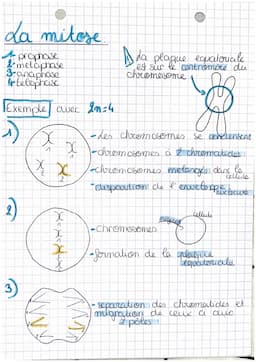 La mitose
1- prophase
2- métaphase
3- anaphase
4- télophase
⚠ La plaque équatoriale
est sur le centromère du
chromosome
Exemple avec 2n=4
1)
- Les chromosomes se condensent
- chromosomes à 2 chromatides
- chromosomes mélangés dans la
cellule
- disparition de l'enveloppe
nucléaire
2)
cellule
- chromosomes
- formation de la plaque
équatoriale
3)
- séparation des chromatides et
migration de ceux-ci aux
2 pôles